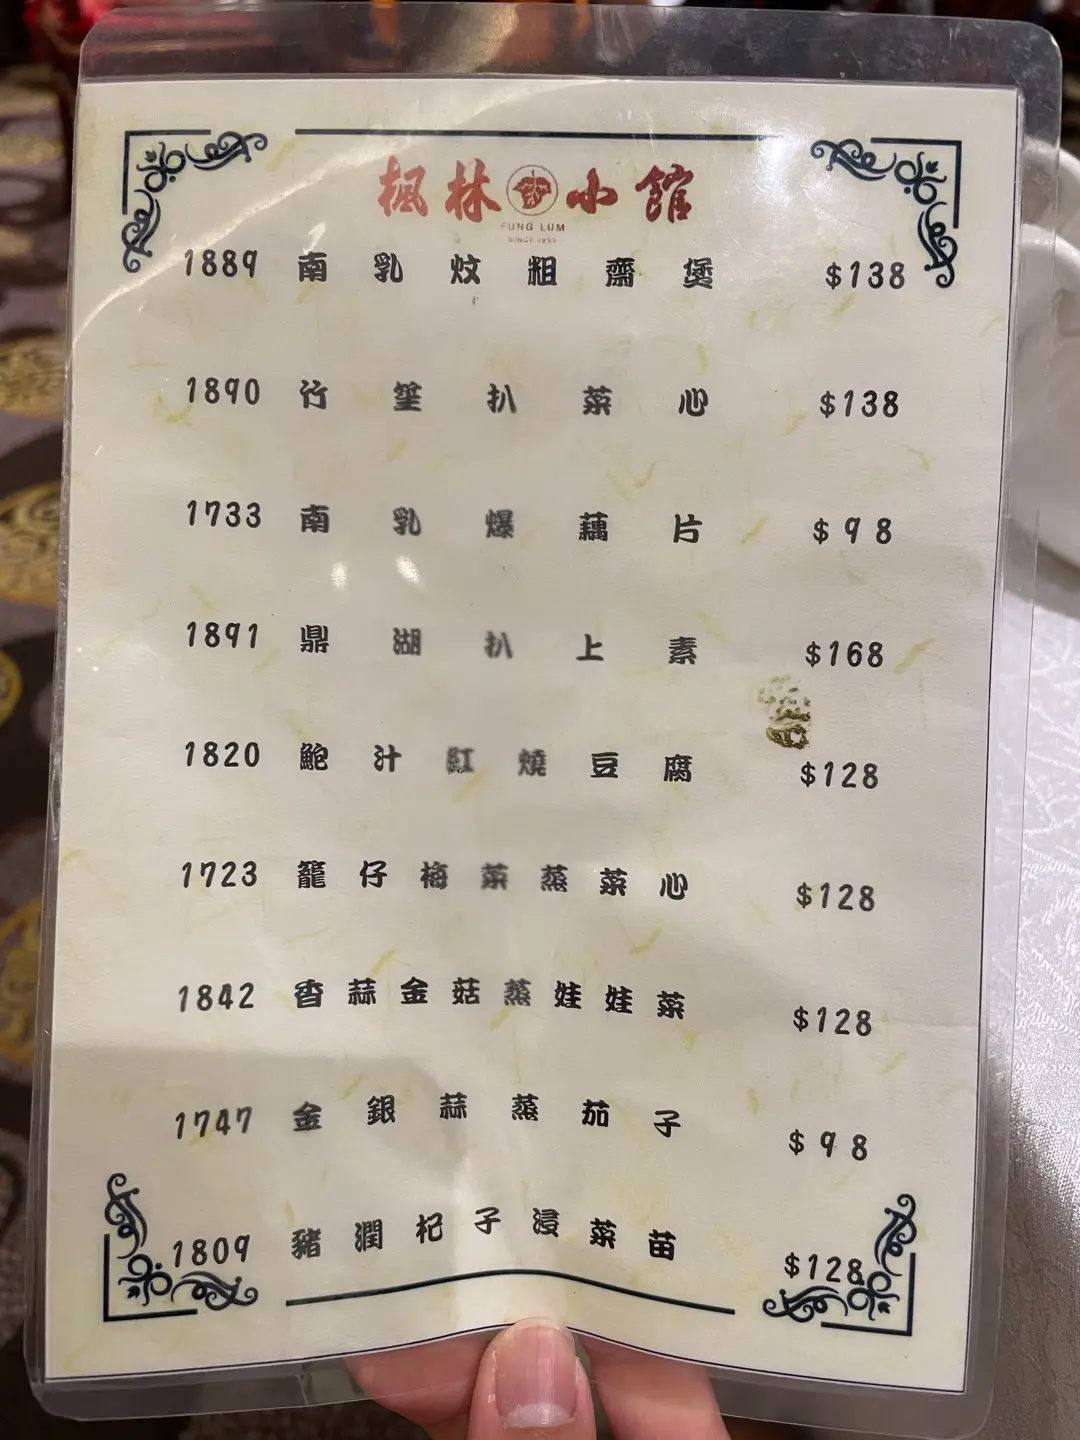 楓林小館
FUNG LUM
1889 南乳炆粗齋煲 $138
1890 竹笙扒菜心 $138
1733 南乳爆藕片 $98
1891 鼎湖扒上素 $168
1820 鮑汁紅燒豆腐 $128
1723 籠仔梅菜蒸菜心 $128
1842 香蒜金菇蒸娃娃菜 $128
1747 金銀蒜蒸茄子 $98
1809 豬潤杞子浸菜苗 $128